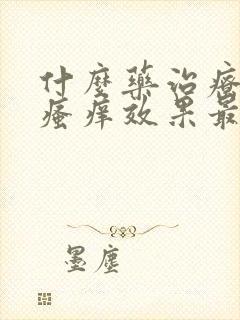 什麼藥治療
瘙痒效果最
墨塵